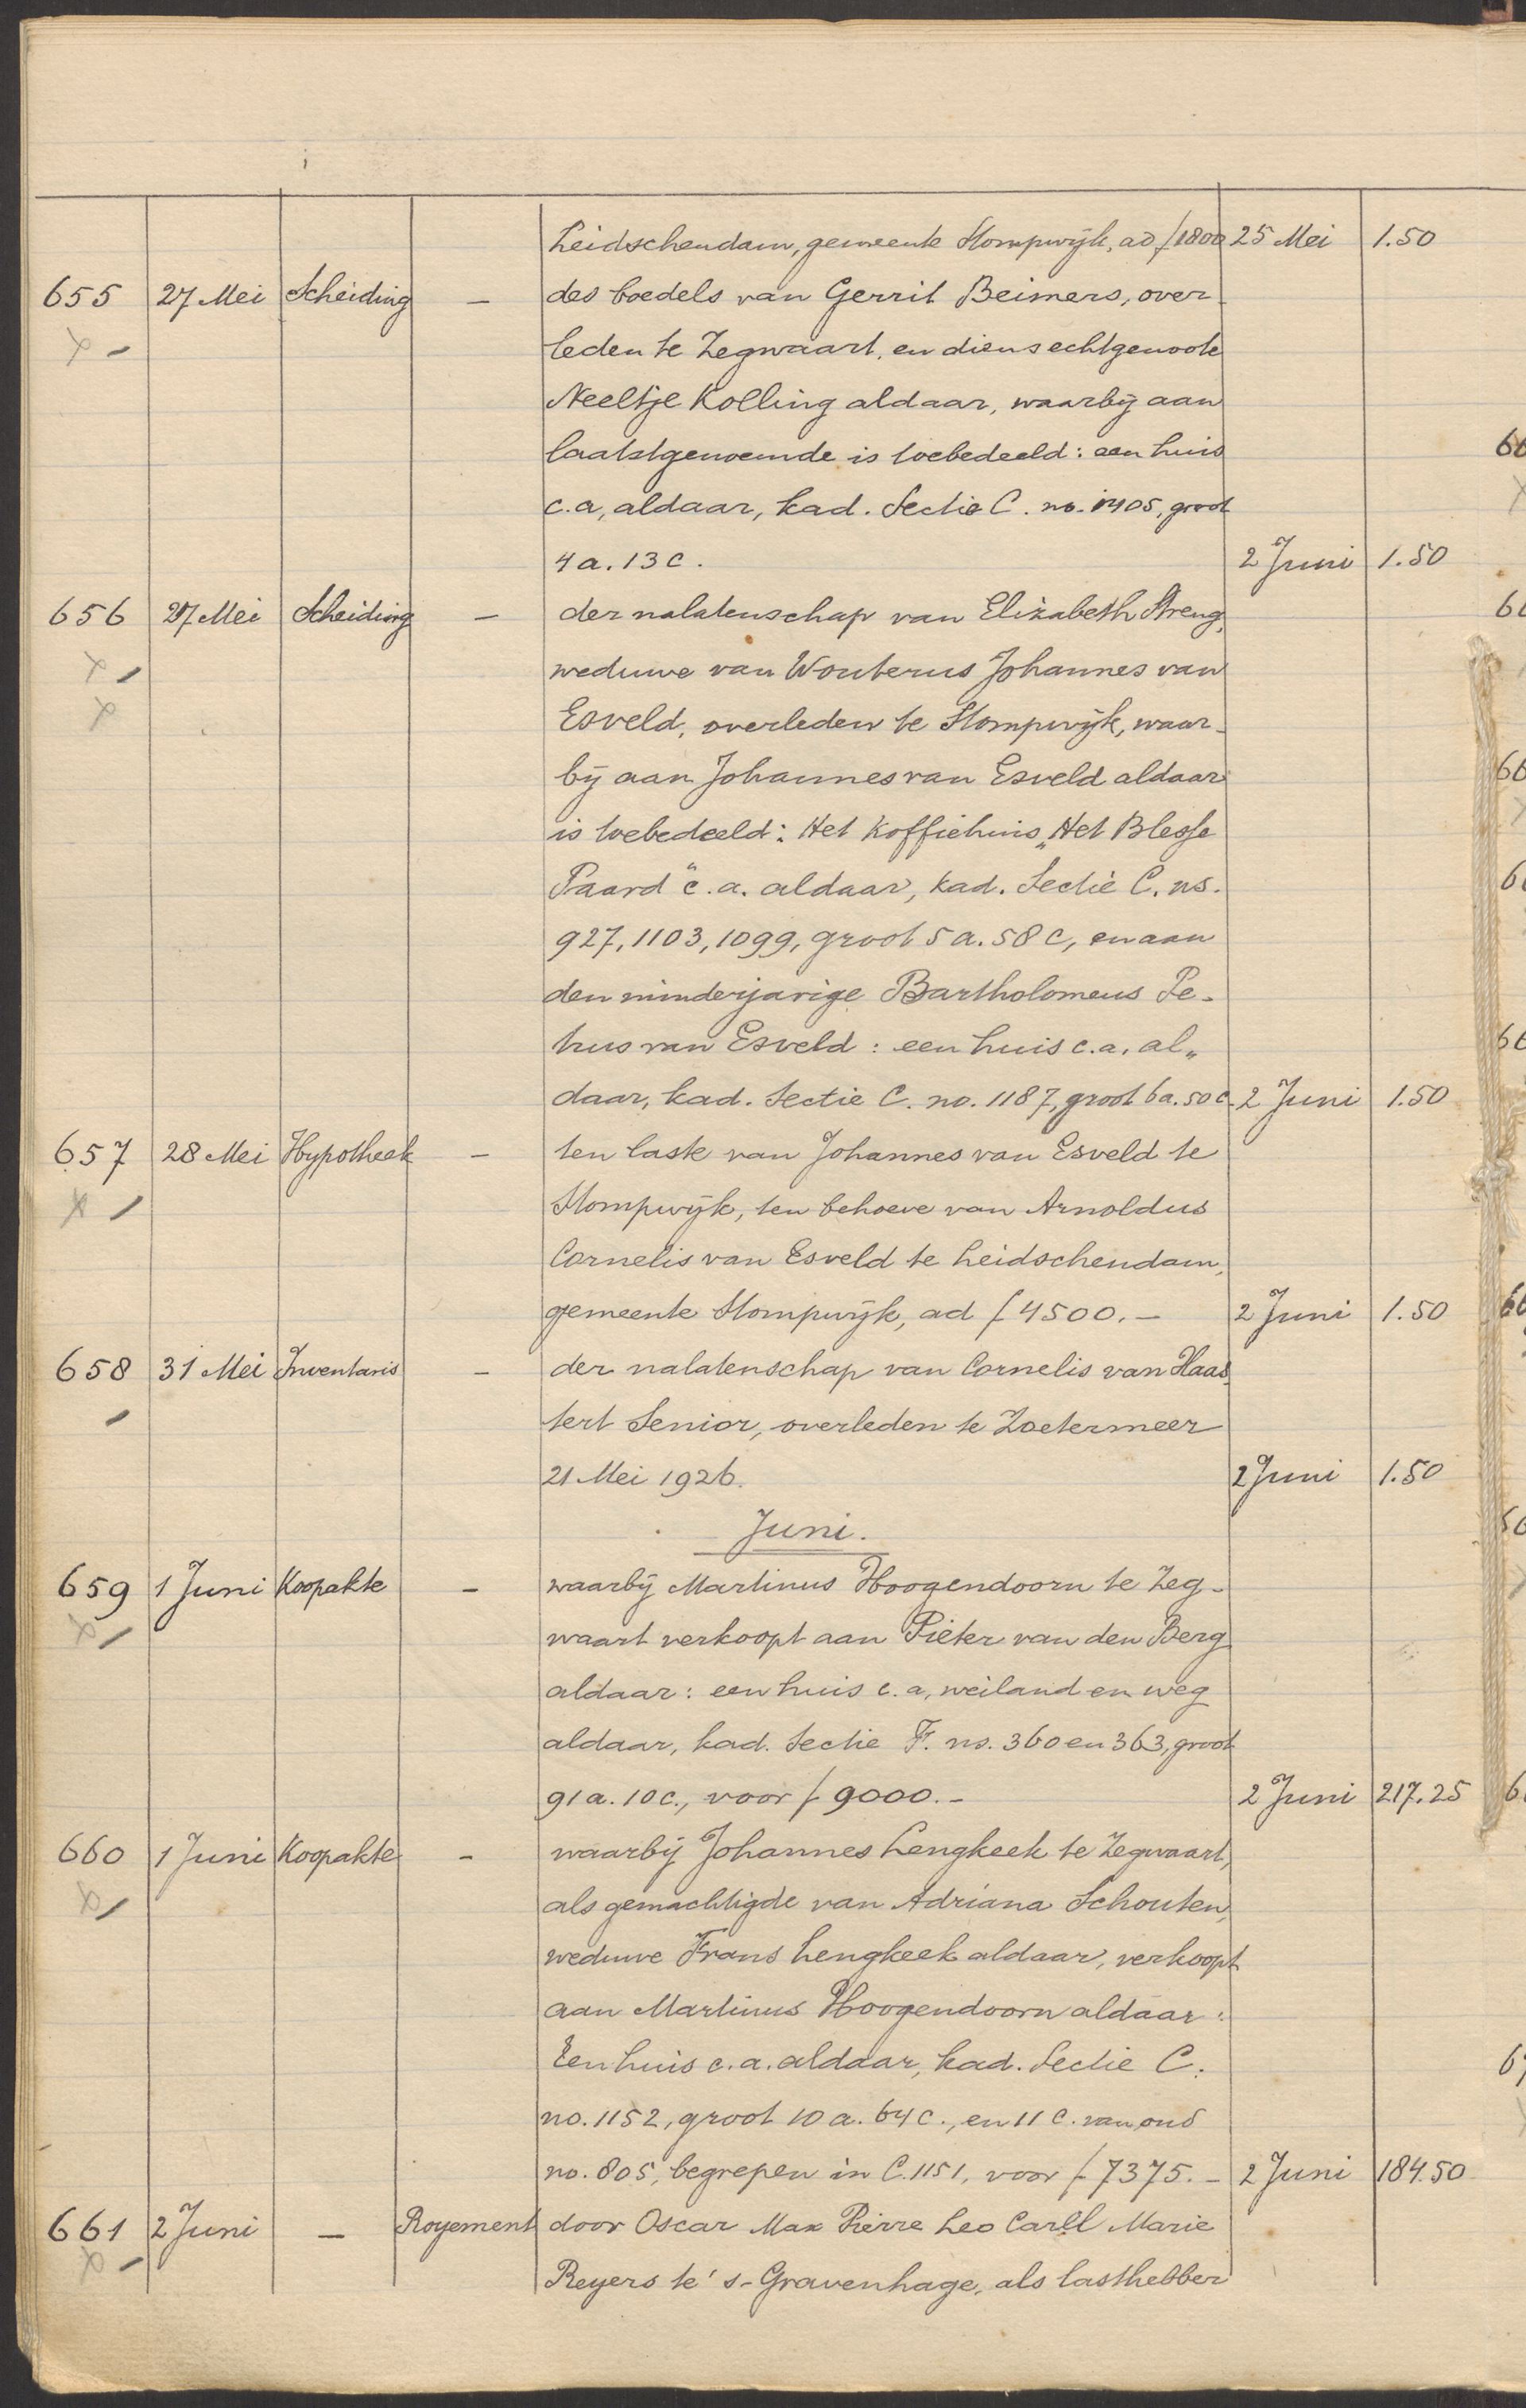 Leidschendam, gemeente Stompwijk, ad ƒ1800 25 Mei 1.50
655 27 Mei Scheiding — des boedels van Gerrit Beimers, over-
leden te Zegwaart, en diens echtgenoote
Neeltje Kolling aldaar, waarbij aan
laatstgenoemde is toebedeeld: een huis
c.a, aldaar, kad. Sectie C. no. 1405, groot
4 a. 13 c. 2 Juni 1.50
656 27 Mei Scheiding — der nalatenschap van Elizabeth Streng,
weduwe van Wouterus Johannes van
Esveld, overleden te Stompwijk, waar-
bij aan Johannes van Esveld aldaar
is toebedeeld: Het Koffiehuis „Het Blesse
Paard" c.a. aldaar, kad. Sectie C. ns.
927, 1103, 1099, groot 5 a. 58 c, en aan
den minderjarige Bartholomeus Pe-
trus van Esveld: een huis c.a. al„
daar, kad. Sectie C. no. 1187, groot 6 a. 50 c. 2 Juni 1.50
657 28 Mei Hypotheek — ten laste van Johannes van Esveld te
Stompwijk, ten behoeve van Arnoldus
Cornelis van Esveld te Leidschendam,
gemeente Stompwijk, ad ƒ 4500.— 2 Juni 1.50
658 31 Mei Inventaris — der nalatenschap van Cornelis van Haas-
tert Senior, overleden te Zoetermeer
21 Mei 1926. 2 Juni 1.50
Juni.
659 1 Juni Koopakte — waarbij Martinus Hoogendoorn te Zeg-
waart verkoopt aan Pieter van den Berg
aldaar: een huis c.a, weiland en weg
aldaar, kad. Sectie F. ns. 360 en 363, groot
91 a. 10 c., voor ƒ 9000.— 2 Juni 217.25
660 1 Juni Koopakte — waarbij Johannes Lengkeek te Zegwaart,
als gemachtigde van Adriana Schouten,
weduwe Frans Lengkeek aldaar, verkoopt
aan Martinus Hoogendoorn aldaar:
Een huis c.a. aldaar, kad. Sectie C.
no. 1152, groot 10 a. 64 c., en 11 c. van oud
no. 805, begrepen in C. 1151, voor ƒ 7375.— 2 Juni 184.50
661 2 Juni — Royement door Oscar Max Pierre Leo Carel Marie
Reyers te 's-Gravenhage, als lasthebber